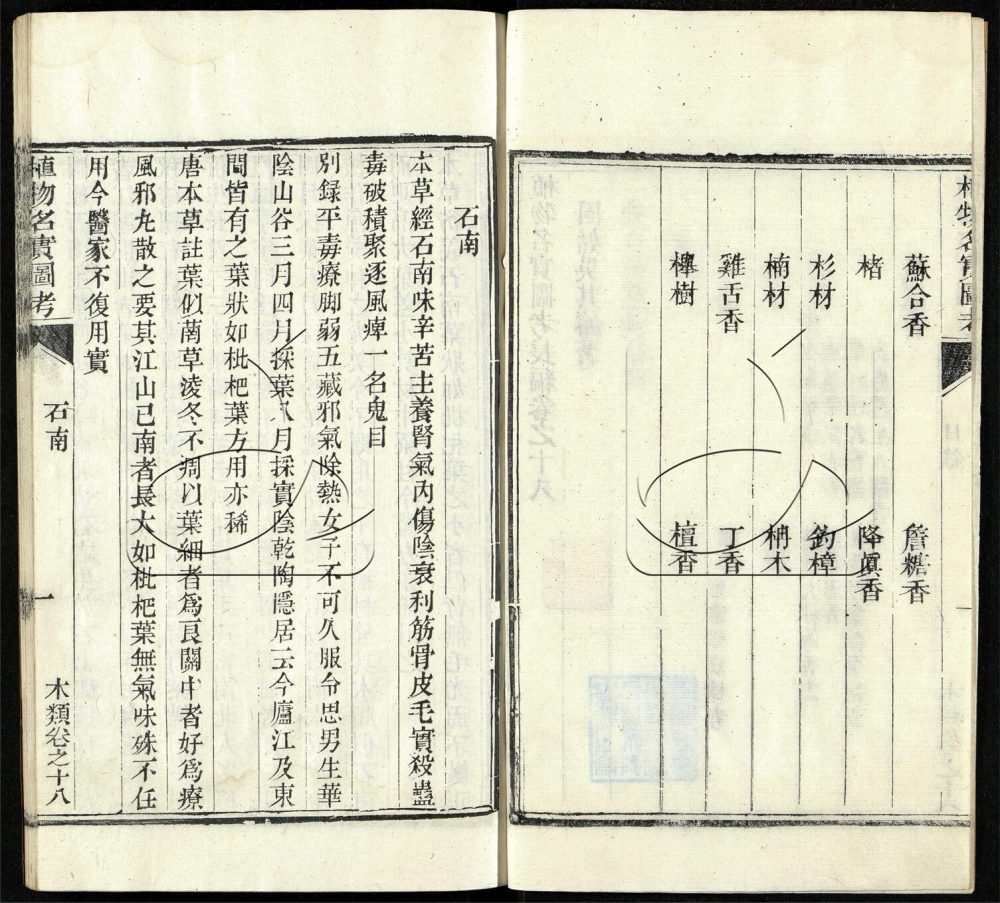 植物名實圖考
蘇合香
詹糖香
楮
降眞香
杉材
釣樟
楠材
枬木
雞舌香
丁香
櫸樹
檀香
石南
本草經石南味辛苦主養腎氣內傷陰衰利筋骨皮毛實殺蠱
毒破積聚逐風痺一名鬼目
別錄平毒療脚弱五藏邪氣除熱女子不可久服令思男生華
陰山谷三月四月採葉八月採實陰乾陶隱居云今廬江及東
間皆有之葉狀如枇杷葉方用亦稀
唐本草註葉似䓶草淩冬不凋以葉細者爲良關中者好爲療
風邪丸散之要其江山已南者長大如枇杷葉無氣味殊不任
用今醫家不復用實
植物名實圖考
石南
一
木類卷之十八